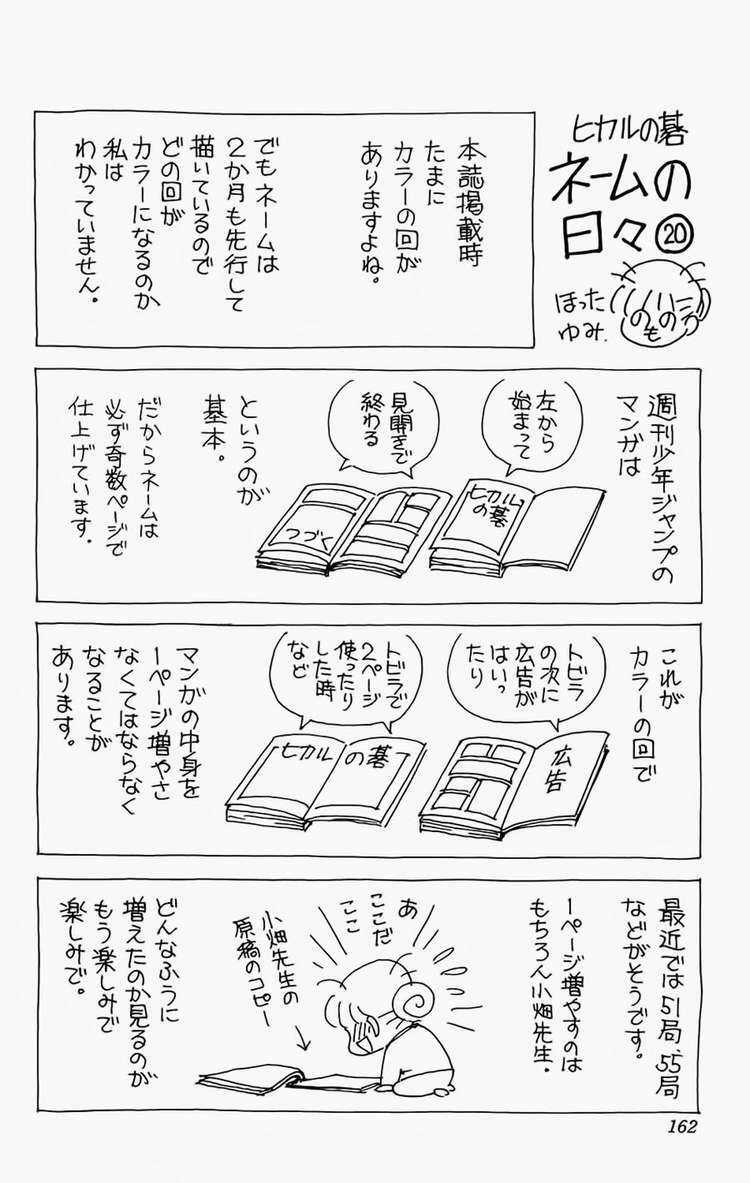 ヒカルの碁
ネームの
日々⑳
ほった
ゆみ.
のものろ
本誌掲載時
たまに
カラーの回が
ありますよね。
でもネームは
2か月も先行して
描いているので
どの回が
カラーになるのか
私は
わかっていません。
週刊少年ジャンプの
マンガは
左から
始まって
ヒカル
の碁
見開きで
終わる
つづく
というのが
基本。
だからネームは
必ず奇数ページで
仕上げています.
これが
カラーの回で
トビラ
の次に
広告が
はいっ
たり
広告
トビラで
2ページ
使ったり
した時
など
ヒカルの碁
マンガの中身を
1ページ増やさ
なくてはならなく
なることが
あります。
最近では51局、55局
などがそうです。
1ページ増やすのは
もちろん小畑先生.
あ
ここだ
ここ
小畑先生の
原稿のコピー
どんなふうに
増えたのか見るのが
もう楽しみで
楽しみで。
162